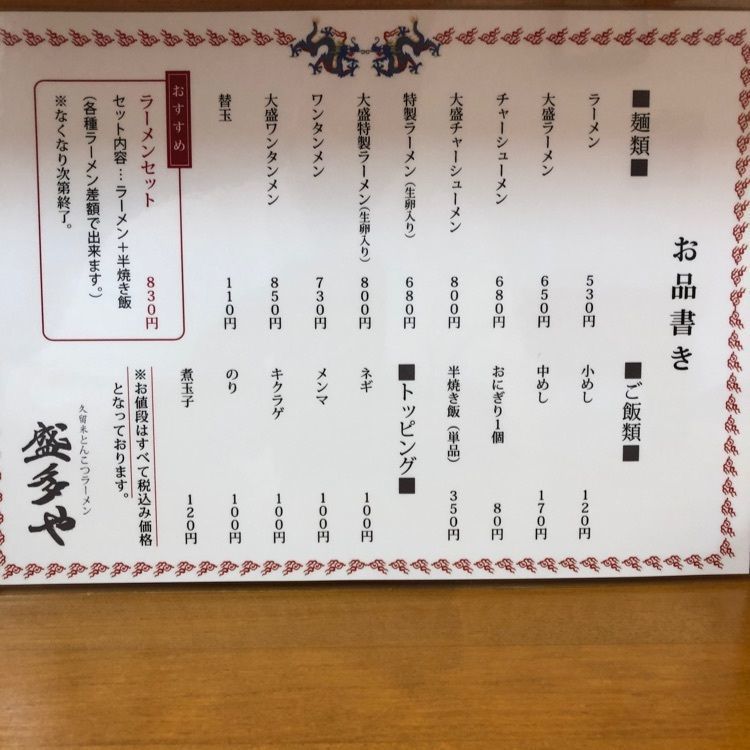 お品書き
■麺類■
ラーメン 530円
大盛ラーメン 650円
チャーシューメン 680円
大盛チャーシューメン 800円
特製ラーメン(生卵入り) 680円
大盛特製ラーメン(生卵入り) 800円
ワンタンメン 730円
大盛ワンタンメン 850円
替玉 110円
おすすめ
ラーメンセット 830円
セット内容…ラーメン+半焼き飯
(各種ラーメン差額で出来ます。)
※なくなり次第終了。
■ご飯類■
小めし 120円
中めし 170円
おにぎり1個 80円
半焼き飯(単品) 350円
■トッピング■
ネギ 100円
メンマ 100円
キクラゲ 100円
のり 100円
煮玉子 120円
※お値段はすべて税込み価格
となっております。
久留米とんこつラーメン
盛多や